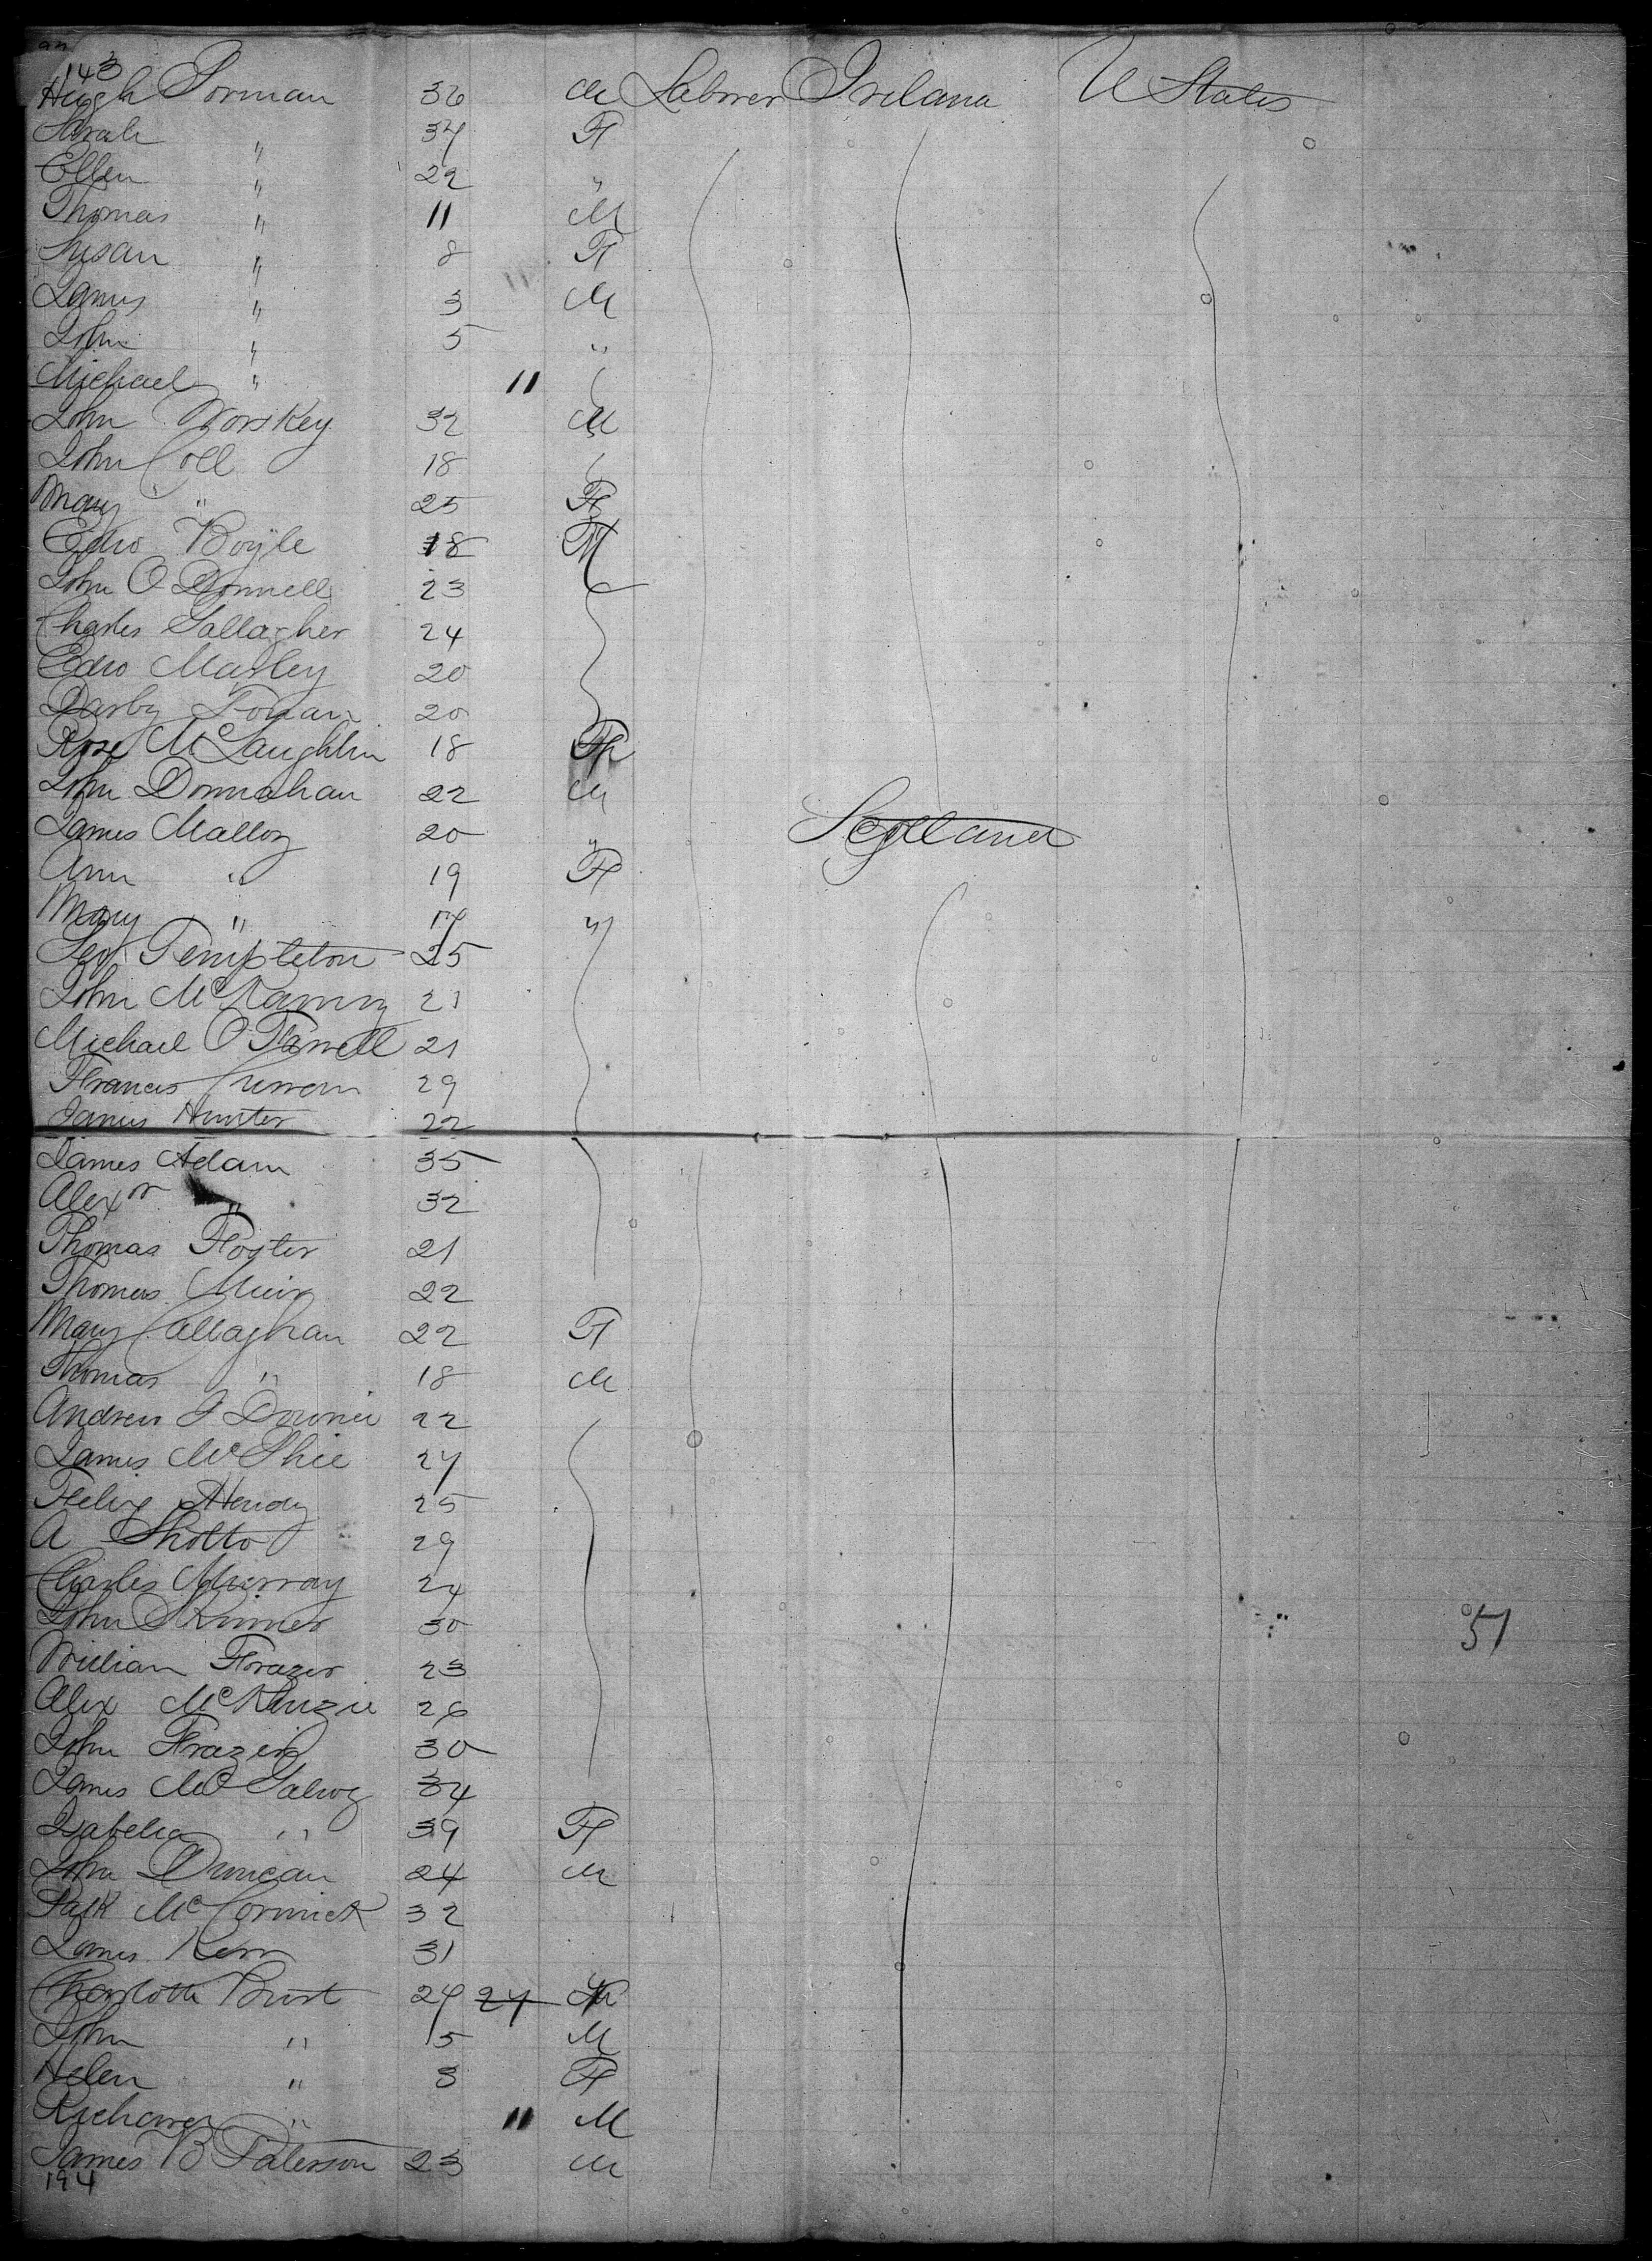 143
Hugh Gorman 36 M Laborer Ireland U States
Sarah " 34 F
Ellen " 22 "
Thomas " 11 M
Susan " 8 F
James " 3 M
John " 5 "
Michael " 11
John Worskey 32 M
John Coll 18
Mary " 25 F
Edw Boyle 18 M
John O Donnell 23
Charles Gallagher 24
Edw Marley 20
Darby 20
Rose McLaughlin 18 F
John Donnahan 22 M
James Malloy 20 " Scotland
Ann " 19 F
Mary " 17 "
Geo Templeton 25
John 21
Michael O Farrell 21
Francis Curran 29
James Hunter 22
James Adam 35
Alexr " 32
Thomas Foster 21
Thomas Muir 22
Mary Callaghan 22 F
Thomas " 18 M
Andrew J Downie 22
James McPhie 27
Felix Hendry 25
A Sholto 29
Charles Murray 24
John Skinner 30 51
William Frazer 23
Alex McKenzie 26
John Frazer 30
James 34
Isabella " 39 F
John Duncan 24 M
Patk McCormick 32
James Kerr 31
Charlotte 27 24
John " 5 M
Helen " 3 F
Richard " 11 M
James B Paterson 23 M
194